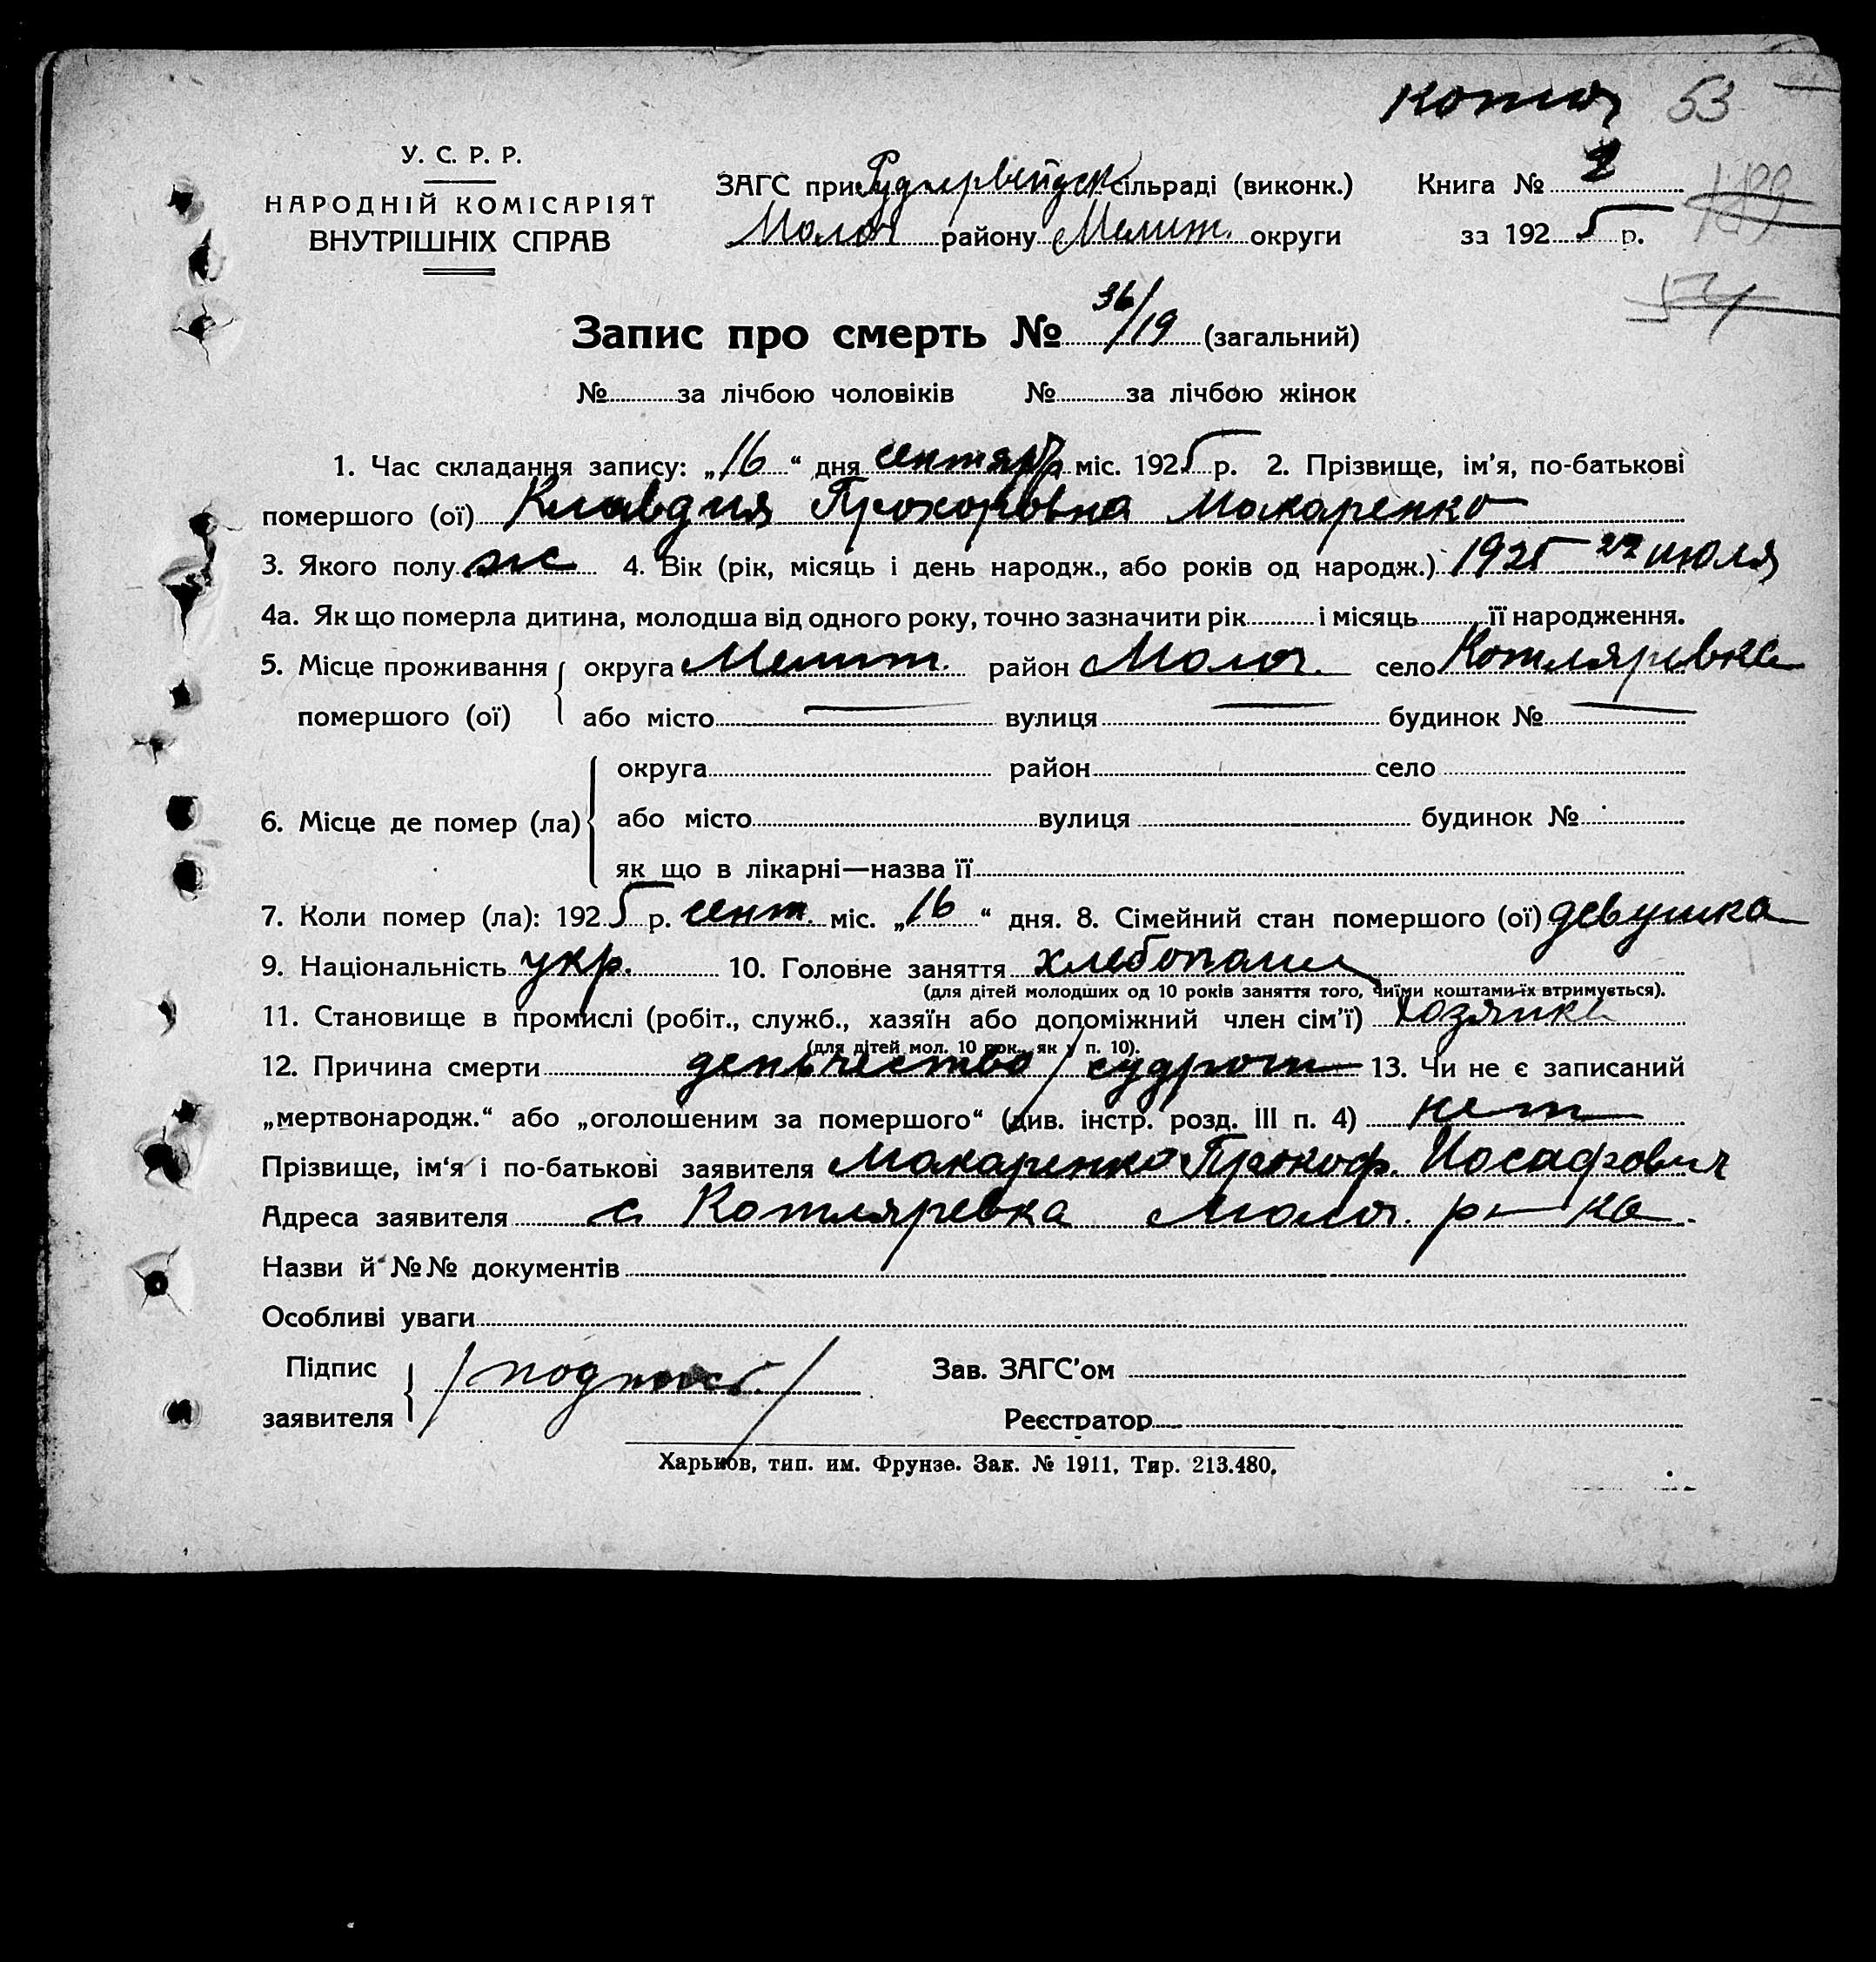 копия 53
У. С. Р. Р.
НАРОДНІЙ КОМІСАРІЯТ
ВНУТРІШНІХ СПРАВ
ЗАГС при сільраді (виконк.) Книга № 2
Молоч району Мелит. округи за 1925 р.
199
54
Запис про смерть № 36/19 (загальний)
№ за лічбою чоловіків № за лічбою жінок
1. Час складання запису: „16“ дня сентября міс. 1925 р. 2. Прізвище, ім’я, по-батькові
помершого (ої) Клавдия Прохоровна Макаренко
3. Якого полу ж 4. Вік (рік, місяць і день народж., або років од народж.) 1925 27 июля
4а. Як що померла дитина, молодша від одного року, точно зазначити рік і місяць її народження.
5. Місце проживання округа Мелит. район Молоч. село Котляревка
помершого (ої) або місто — вулиця — будинок № —
округа район село
6. Місце де помер (ла) або місто вулиця будинок №
як що в лікарні—назва її
7. Коли помер (ла): 1925 р. сент. міс. „16“ дня. 8. Сімейний стан помершого (ої) девушка
9. Національність укр. 10. Головне заняття хлебопаш
(для дітей молодших од 10 років заняття того, чиїми коштами їх втримується).
11. Становище в промислі (робіт., служб., хазяїн або допоміжний член сім’ї) хозяика
(для дітей мол. 10 рок., як у п. 10).
12. Причина смерти / судрот 13. Чи не є записаний
„мертвонародж.“ або „оголошеним за помершого“ (див. інстр. розд. III п. 4) нет
Прізвище, ім‘я і по-батькові заявителя Макаренко Прокоф. Иосафович
Адреса заявителя с Котляревка Молоч. р-на
Назви й №№ документів
Особливі уваги
Підпис
заявителя /подпись/
Зав. ЗАГС’ом
Реєстратор
Харьков, тип. им. Фрунзе. Зак. № 1911, Тир. 213.480.